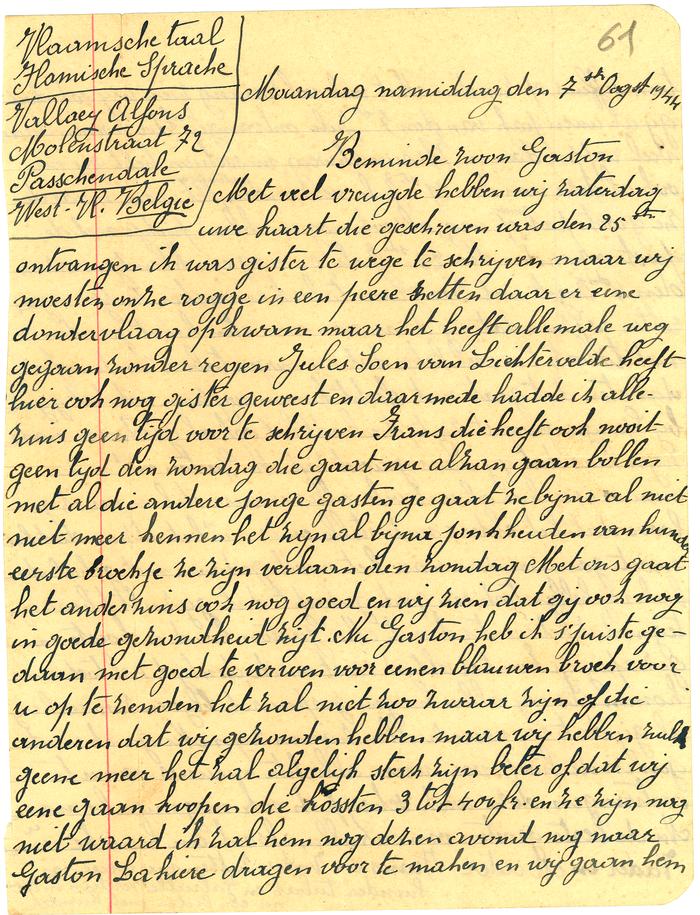 61
Vlaamsche taal
Flamische Sprache
Vallaey Alfons
Molenstraat 72
Passchendale
West-Vl. België
Maandag namiddag den 7den Oogst 1944
Beminde zoon Gaston
Met veel vreugde hebben wij zaterdag
uwe kaart die geschreven was den 25ste
ontvangen ik was gister te wege te schrijven maar wij
moesten onze rogge in een peere zetten daar er eene
dondervlaag op kwam maar het heeft allemale weg
gegaan zonder regen Jules Soen van Lichtervelde heeft
hier ook nog gister geweest en daarmede hadde ik alle-
zins geen tijd voor te schrijven Frans die heeft ook nooit
geen tijd den zondag die gaat nu alzan gaan bollen
met al die andere jonge gasten ge gaat ze bijna al niet
niet meer kennen het zijn al bijna jonkheiden van hunder
eerste broekje ze zijn verlaan den zondag Met ons gaat
het anderzins ook nog goed en wij zien dat gij ook nog
in goede gezondheid zijt. Nu Gaston heb ik s'juiste ge-
daan met goed te verwen voor eenen blauwen broek voor
u op te zenden het zal niet zoo zwaar zijn of die
anderen dat wij gezonden hebben maar wij hebben zulk
geene meer het zal algelijk sterk zijn beter of dat wij
eene gaan koopen die kossten 3 tot 400 fr. en ze zijn nog
niet waard ik zal hem nog dezen avond nog naar
Gaston Lahiere dragen voor te maken en wij gaan hem